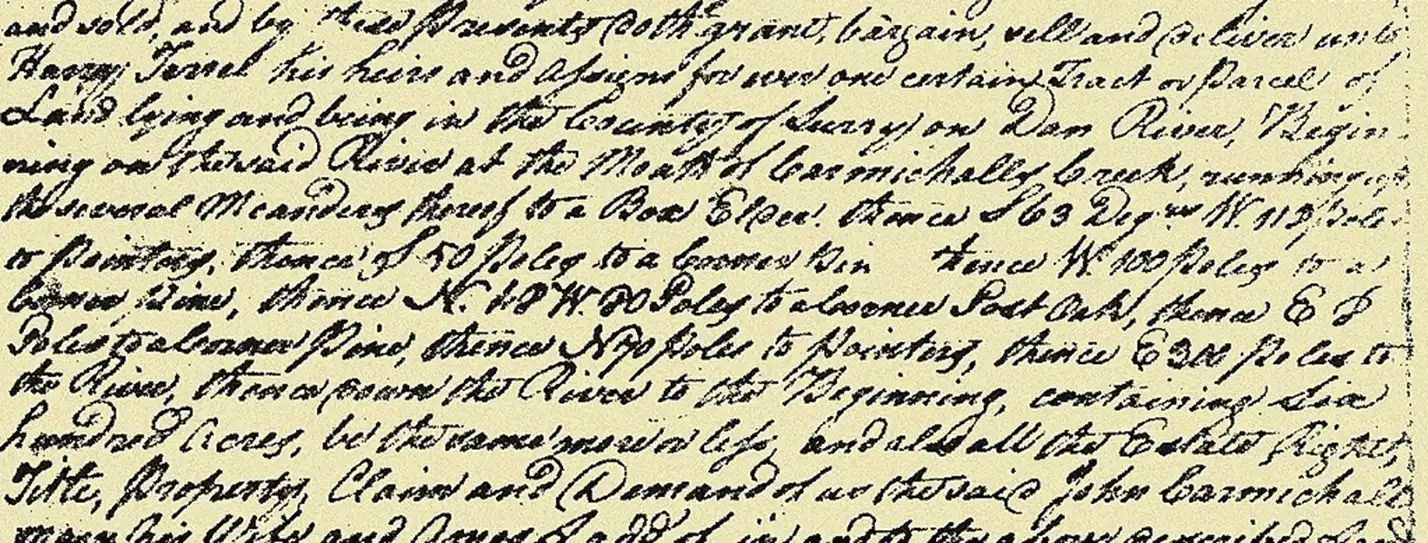 and sold, and by these Presents doth grant, bargain, sell and deliver unto
Harry Terrel his heirs and assigns for ever one certain Tract or Parcel of
Land lying and being in the County of Surry on Dan River, Begin-
ning on the said River at the Mouth of Carmichalls Creek, running up
the several Meanders thereof to a Box Elder. thence S 63 Degrs W. 113 poles
to Pointers, thence S 50 Poles to a Corner Pin thence W 100 Poles to a
Corner Pine, thence N. 48 W. 80 Poles to a Corner Post Oak, thence E 8
Poles to a Corner Pine, thence N 90 Poles to Pointers, thence E 300 Poles to
the River, thence down the River to the Beginning, containing Six
hundred Acres, be the same more or less, and also all the Estate Right,
Title, Property, Claim and Demand of us the said John Carmichall
his Wife and of in and to the above described Land